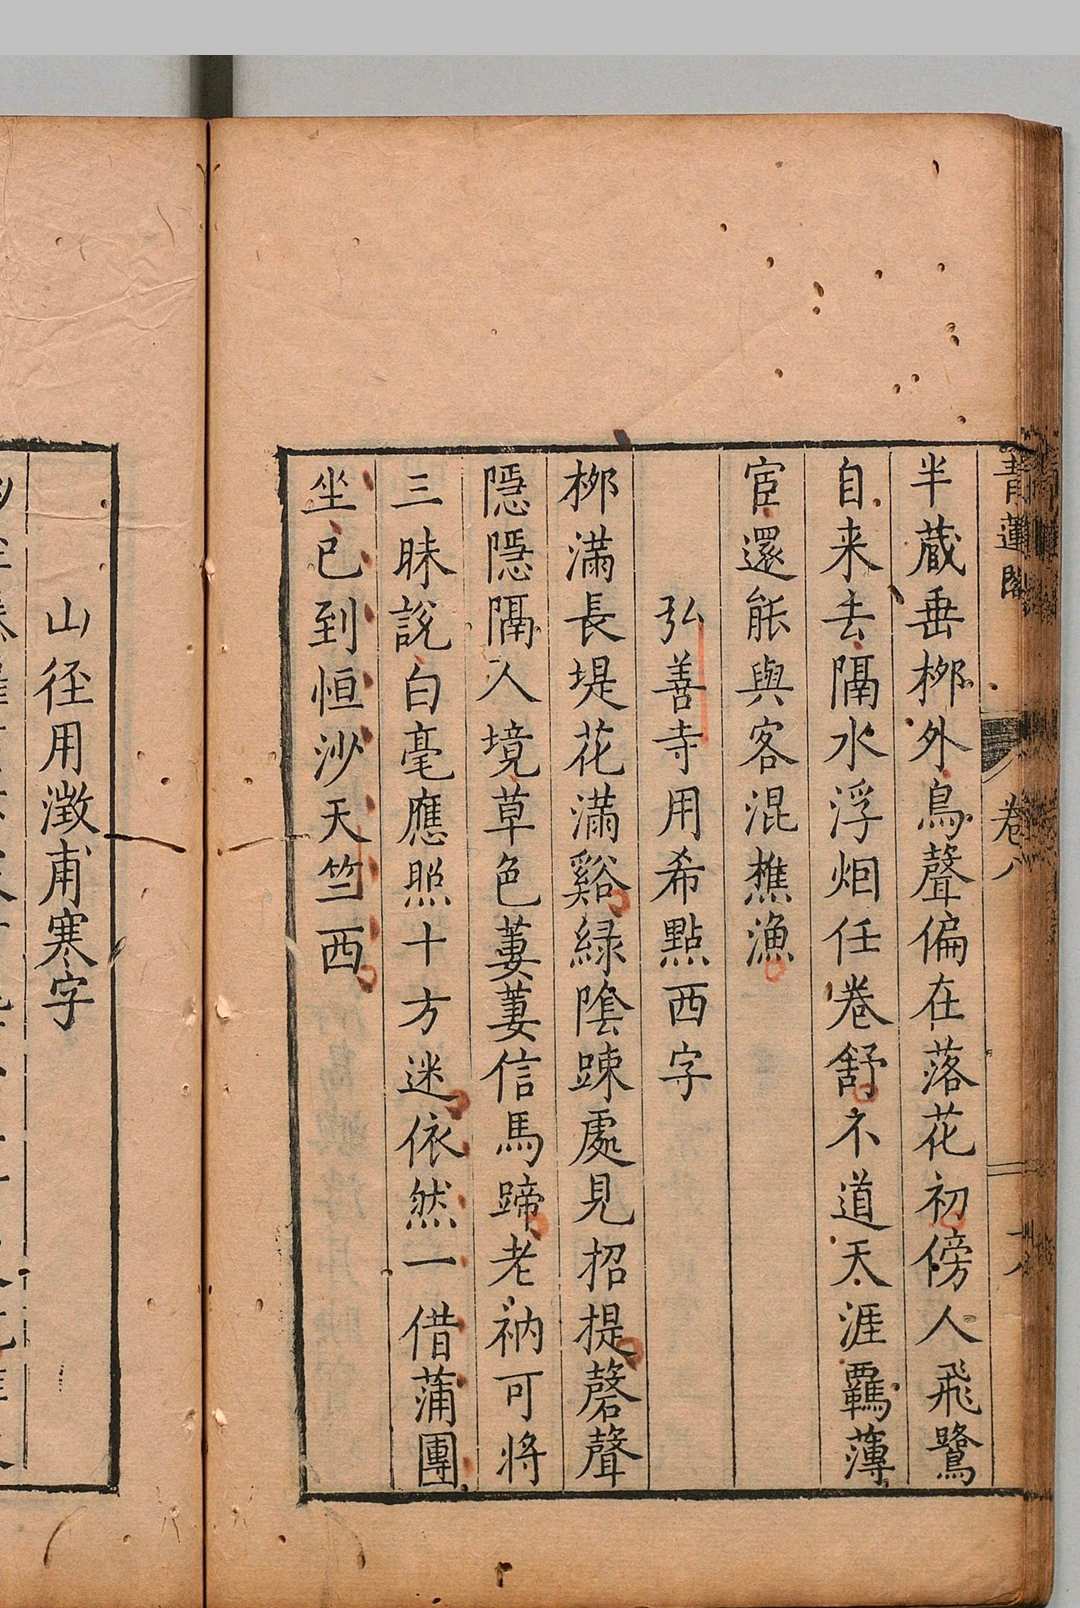 青蓮閣
卷八
半蔵垂栁外鳥聲偏在落花初傍人飛鷺
自来去隔水浮烟任卷舒不道天涯羈薄
宦還能與客混樵漁
弘善寺用希點西字
栁滿長堤花滿谿緑陰踈處見招提磬聲
隱隱隔人境草色萋萋信馬蹄老衲可將
三昧說白毫應照十方迷依然一借蒲團
坐已到恒沙天竺西
山徑用澂甫寒字